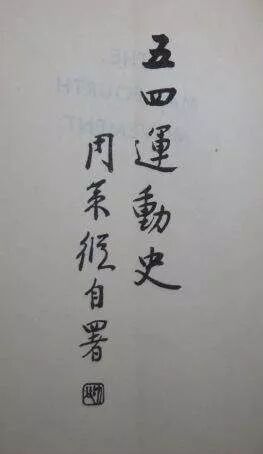 五四運動史
周策縱自署